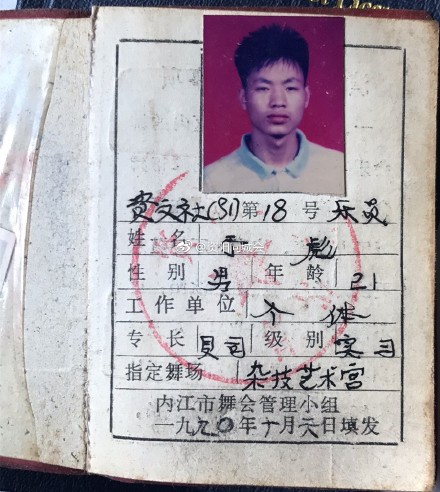 资文社(91)第18号 乐员
姓名 于彪
性别 男 年龄 21
工作单位 个体
专长 贝司 级别 实习
指定舞场 杂技艺术宫
内江市舞会管理小组
一九九〇年十月六日填发